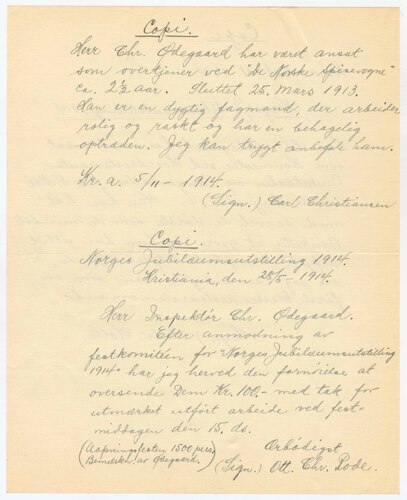 Copi.
Herr Chr. Ødegaard har været ansat
som overtjener ved "De Norske Spisevogne"
ca. 2½ aar. Sluttet 25. Mars 1913.
Han er en dygtig fagmand, der arbeider
rolig og raskt og har en behagelig
optræden. Jeg kan trygt anbefale ham.
Kr.a. 5/11 - 1914.
(Sign.) Carl Christiansen
Copi.
Norges Jubilæumsutstilling 1914.
Kristiania, den 28/5 - 1914.
Herr Inspektør Chr. Ødegaard.
Efter anmodning av
festkomiteen for "Norges Jubilæumsutstilling
1914" har jeg herved den fornøielse at
oversende Dem Kr. 100,- med tak for
utmærket utført arbeide ved fest-
middagen den 15. ds.
(Aapningsfesten 1500 pers.
Bemærkn. av Ødegaard.)
Ærbødigst
(Sign.) Ott. Chr.